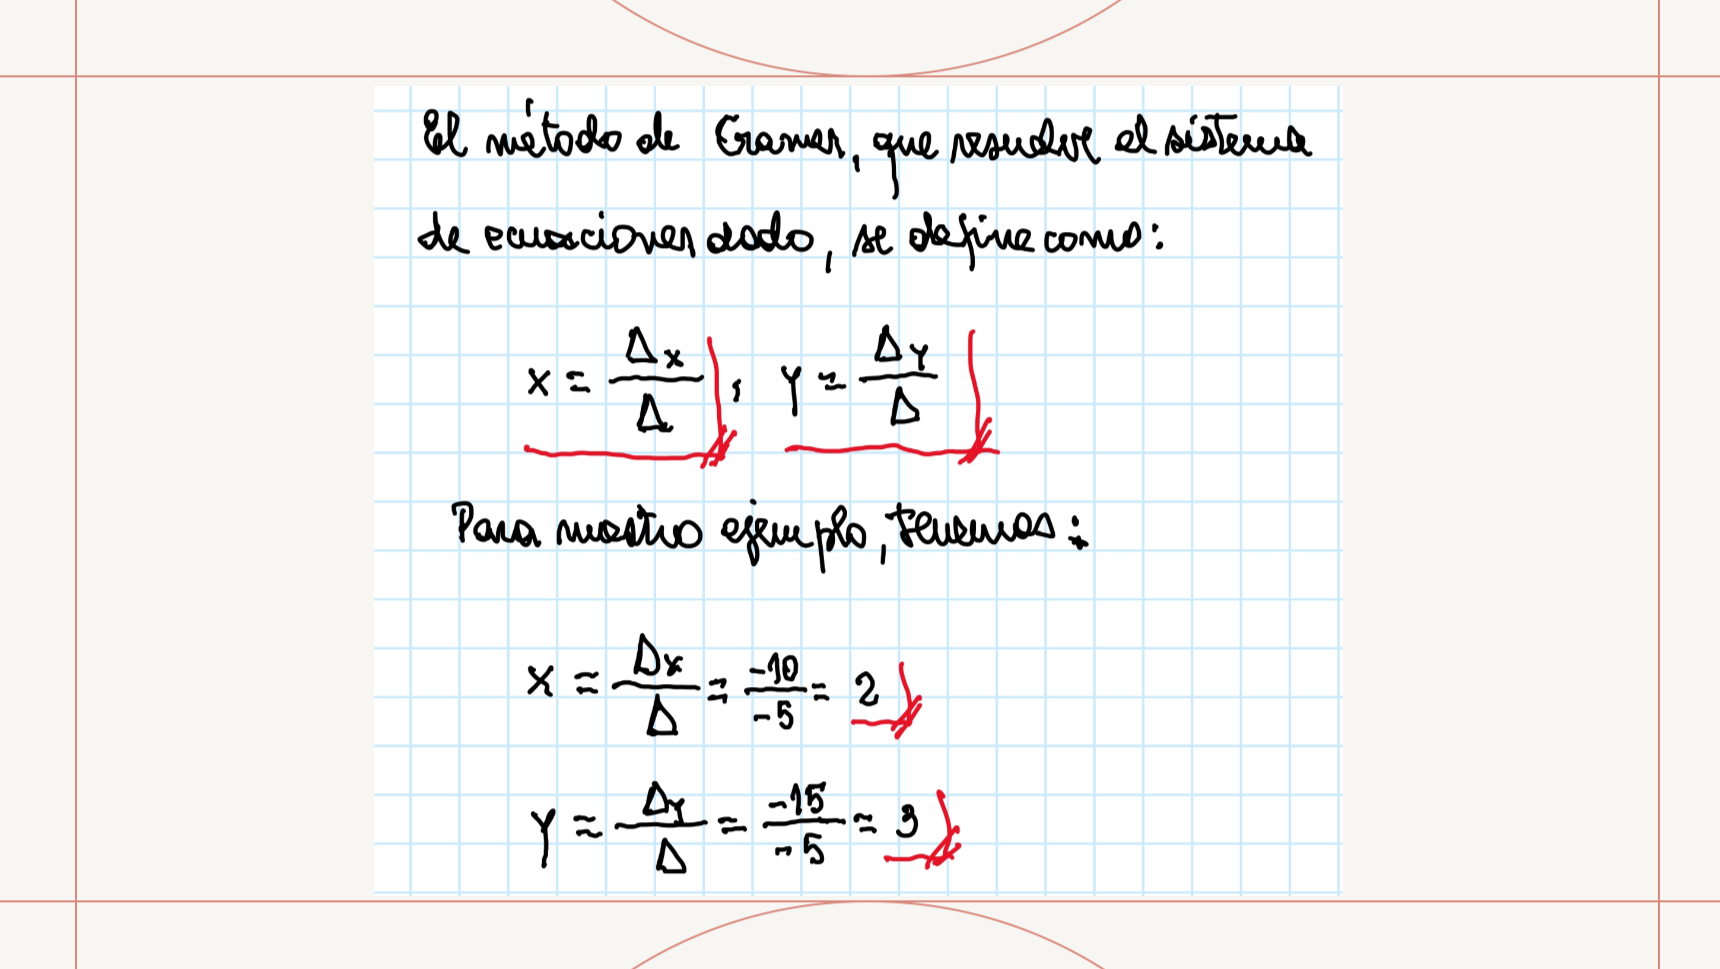 El método de Cramer, que resuelve el sistema
de ecuaciones dado, se define como:
x = Δx/Δ , y = Δy/Δ
Para nuestro ejemplo, tenemos:
x = Δx/Δ = -10/-5 = 2
y = Δy/Δ = -15/-5 = 3